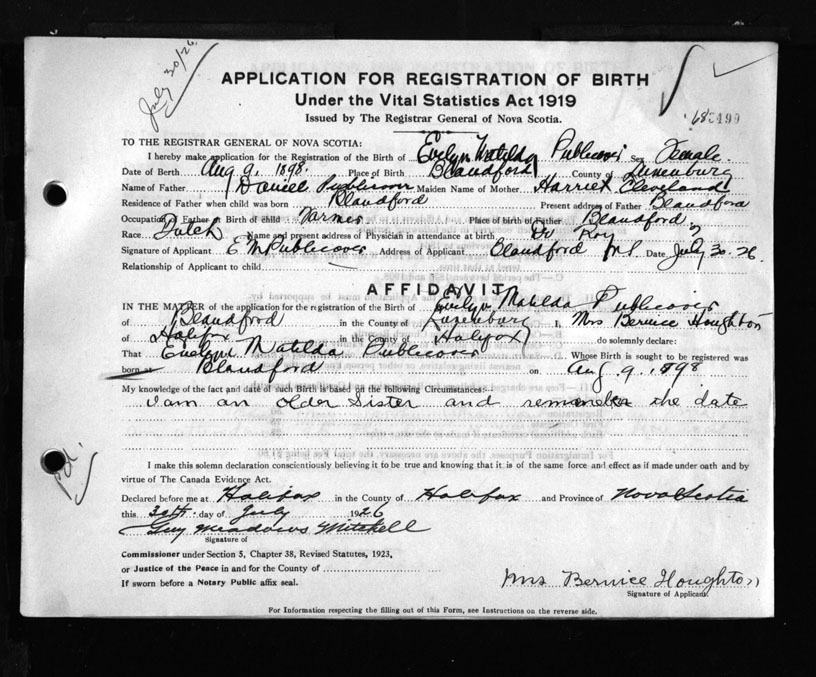 July 30/26
APPLICATION FOR REGISTRATION OF BIRTH
Under the Vital Statistics Act 1919
Issued by The Registrar General of Nova Scotia.
TO THE REGISTRAR GENERAL OF NOVA SCOTIA:
I hereby make application for the Registration of the Birth of Evelyn Matilda Publicover Sex Female.
Date of Birth Aug 9, 1898. Place of Birth Blandford County of Lunenburg
Name of Father Daniel Publicover Maiden Name of Mother Harriet Cleveland
Residence of Father when child was born Blandford Present address of Father Blandford
Occupation of Father at Birth of child Farmer Place of birth of Father Blandford
Race Dutch Name and present address of Physician in attendance at birth Dr Roy
Signature of Applicant E M Publicover Address of Applicant Blandford N.S. Date July 30. 26.
Relationship of Applicant to child
AFFIDAVIT
IN THE MATTER of the application for the registration of Birth of Evelyn Matilda Publicover
of Blandford in the County of Lunenburg I, Mrs Bernice Houghton
of Halifax in the County of Halifax do solemnly declare:
That Evelyn Matilda Publicover Whose Birth is sought to be registered was
born at Blandford on Aug 9, 1898
My knowledge of the fact and date of such Birth is based on the following Circumstances:
I am an older sister and remember the date
I make this solemn declaration conscientiously believing it to be true and knowing that it is of the same force and effect as if made under oath and by
virtue of The Canada Evidence Act.
Declared before me at Halifax in the County of Halifax and Province of Nova Scotia
this 30th day of July 1926
Guy Meadows Mitchell
Signature of
Commissioner under Section 5, Chapter 38, Revised Statutes, 1923,
or Justice of the Peace in and for the County of
If sworn before a Notary Public affix seal.
Mrs Bernice Houghton
Signature of Applicant.
For Information respecting the filling out of this Form, see Instructions on the reverse side.